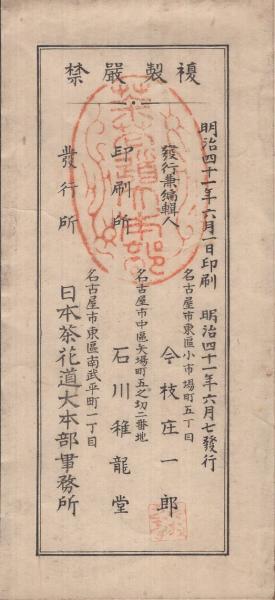 複製嚴禁
明治四十一年六月一日印刷 明治四十一年六月七發行
名古屋市東區小市場町五丁目
發行兼編輯人 今枝庄一郎
名古屋市中區矢場町五之切二番地
印刷所 石川雅龍堂
名古屋市東區南武平町一丁目
發行所 日本茶花道大本部事務所